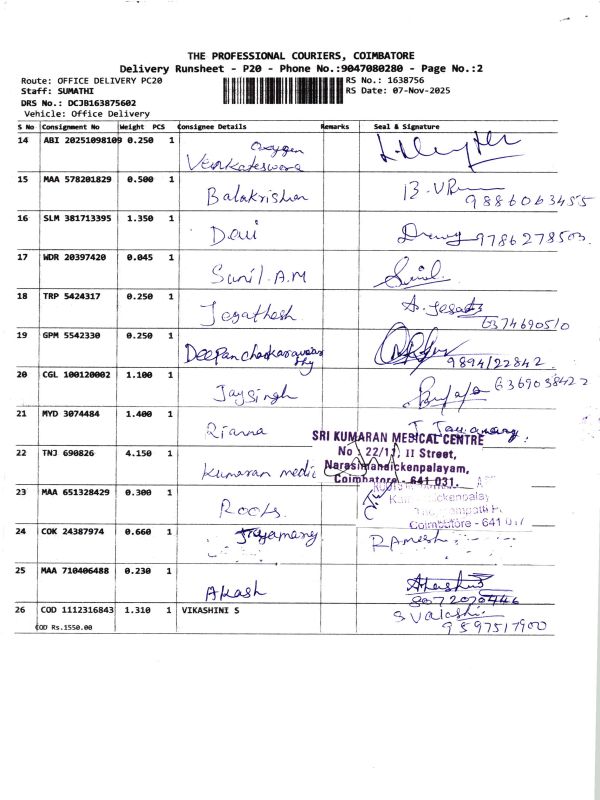 THE PROFESSIONAL COURIERS, COIMBATORE
Delivery Runsheet - P20 - Phone No.:9047080280 - Page No.:2
Route: OFFICE DELIVERY PC20 RS No.: 1638756
Staff: SUMATHI RS Date: 07-Nov-2025
DRS No.: DCJB163875602
Vehicle: Office Delivery
S No Consignment No Weight PCS Consignee Details Remarks Seal & Signature
14 ABI 20251098109 0.250 1 Oxygen
Venkateswara
15 MAA 578201829 0.500 1 Balakrishnan
9886063455
16 SLM 381713395 1.350 1 Devi
9786278503.
17 WDR 20397420 0.045 1 Sunil.A.M Sunil.
18 TRP 5424317 0.250 1 Jegathesh
6374690510
19 GPM 5542330 0.250 1 Deepan
9894122842
20 CGL 100120002 1.100 1 Jaysingh
6369038422
21 MYD 3074484 1.400 1 Rianna
SRI KUMARAN MEDICAL CENTRE
No. 22/11, II Street,
22 TNJ 690826 4.150 1 Kumaran medic Narasimanaickenpalayam,
Coimbatore - 641 031.
23 MAA 651328429 0.300 1 Roots
Coimbatore - 641 017
24 COK 24387974 0.660 1 Ramesh
25 MAA 710406488 0.230 1 Akash Akash
8072070446
26 COD 1112316843 1.310 1 VIKASHINI S
COD Rs.1550.00 9597517900